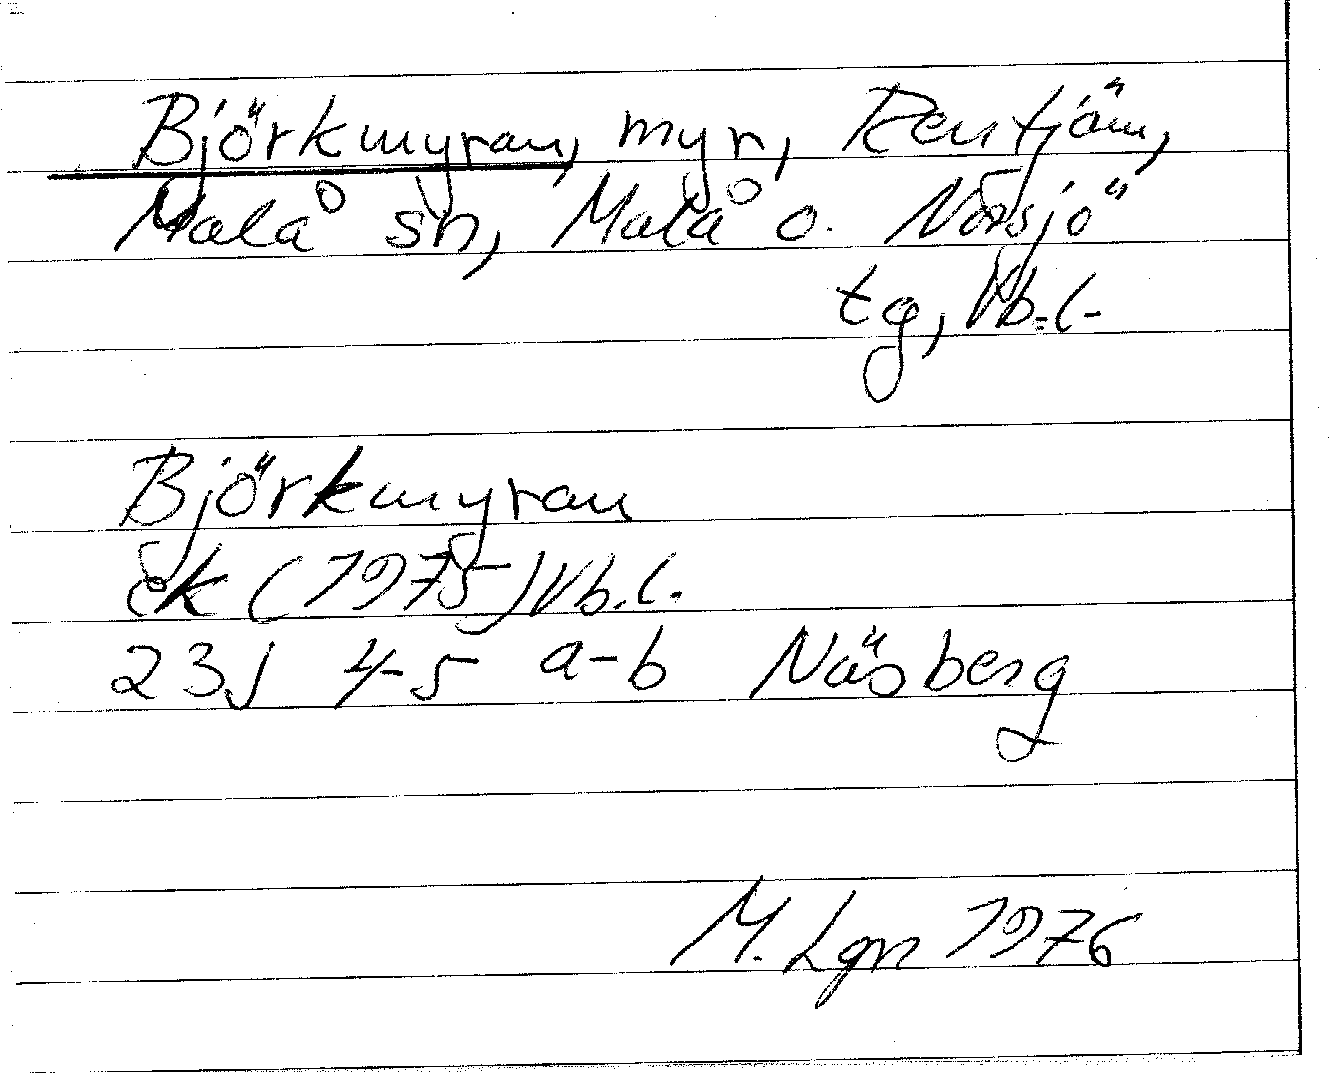 Björkmyran, myr, Rentjärn,
Malå sn, Malå o. Norsjö
tg, Vb.l.
Björkmyran
ek (1975) Vb.l.
23J 4-5 a-b Näsberg
M. Lgn 1976